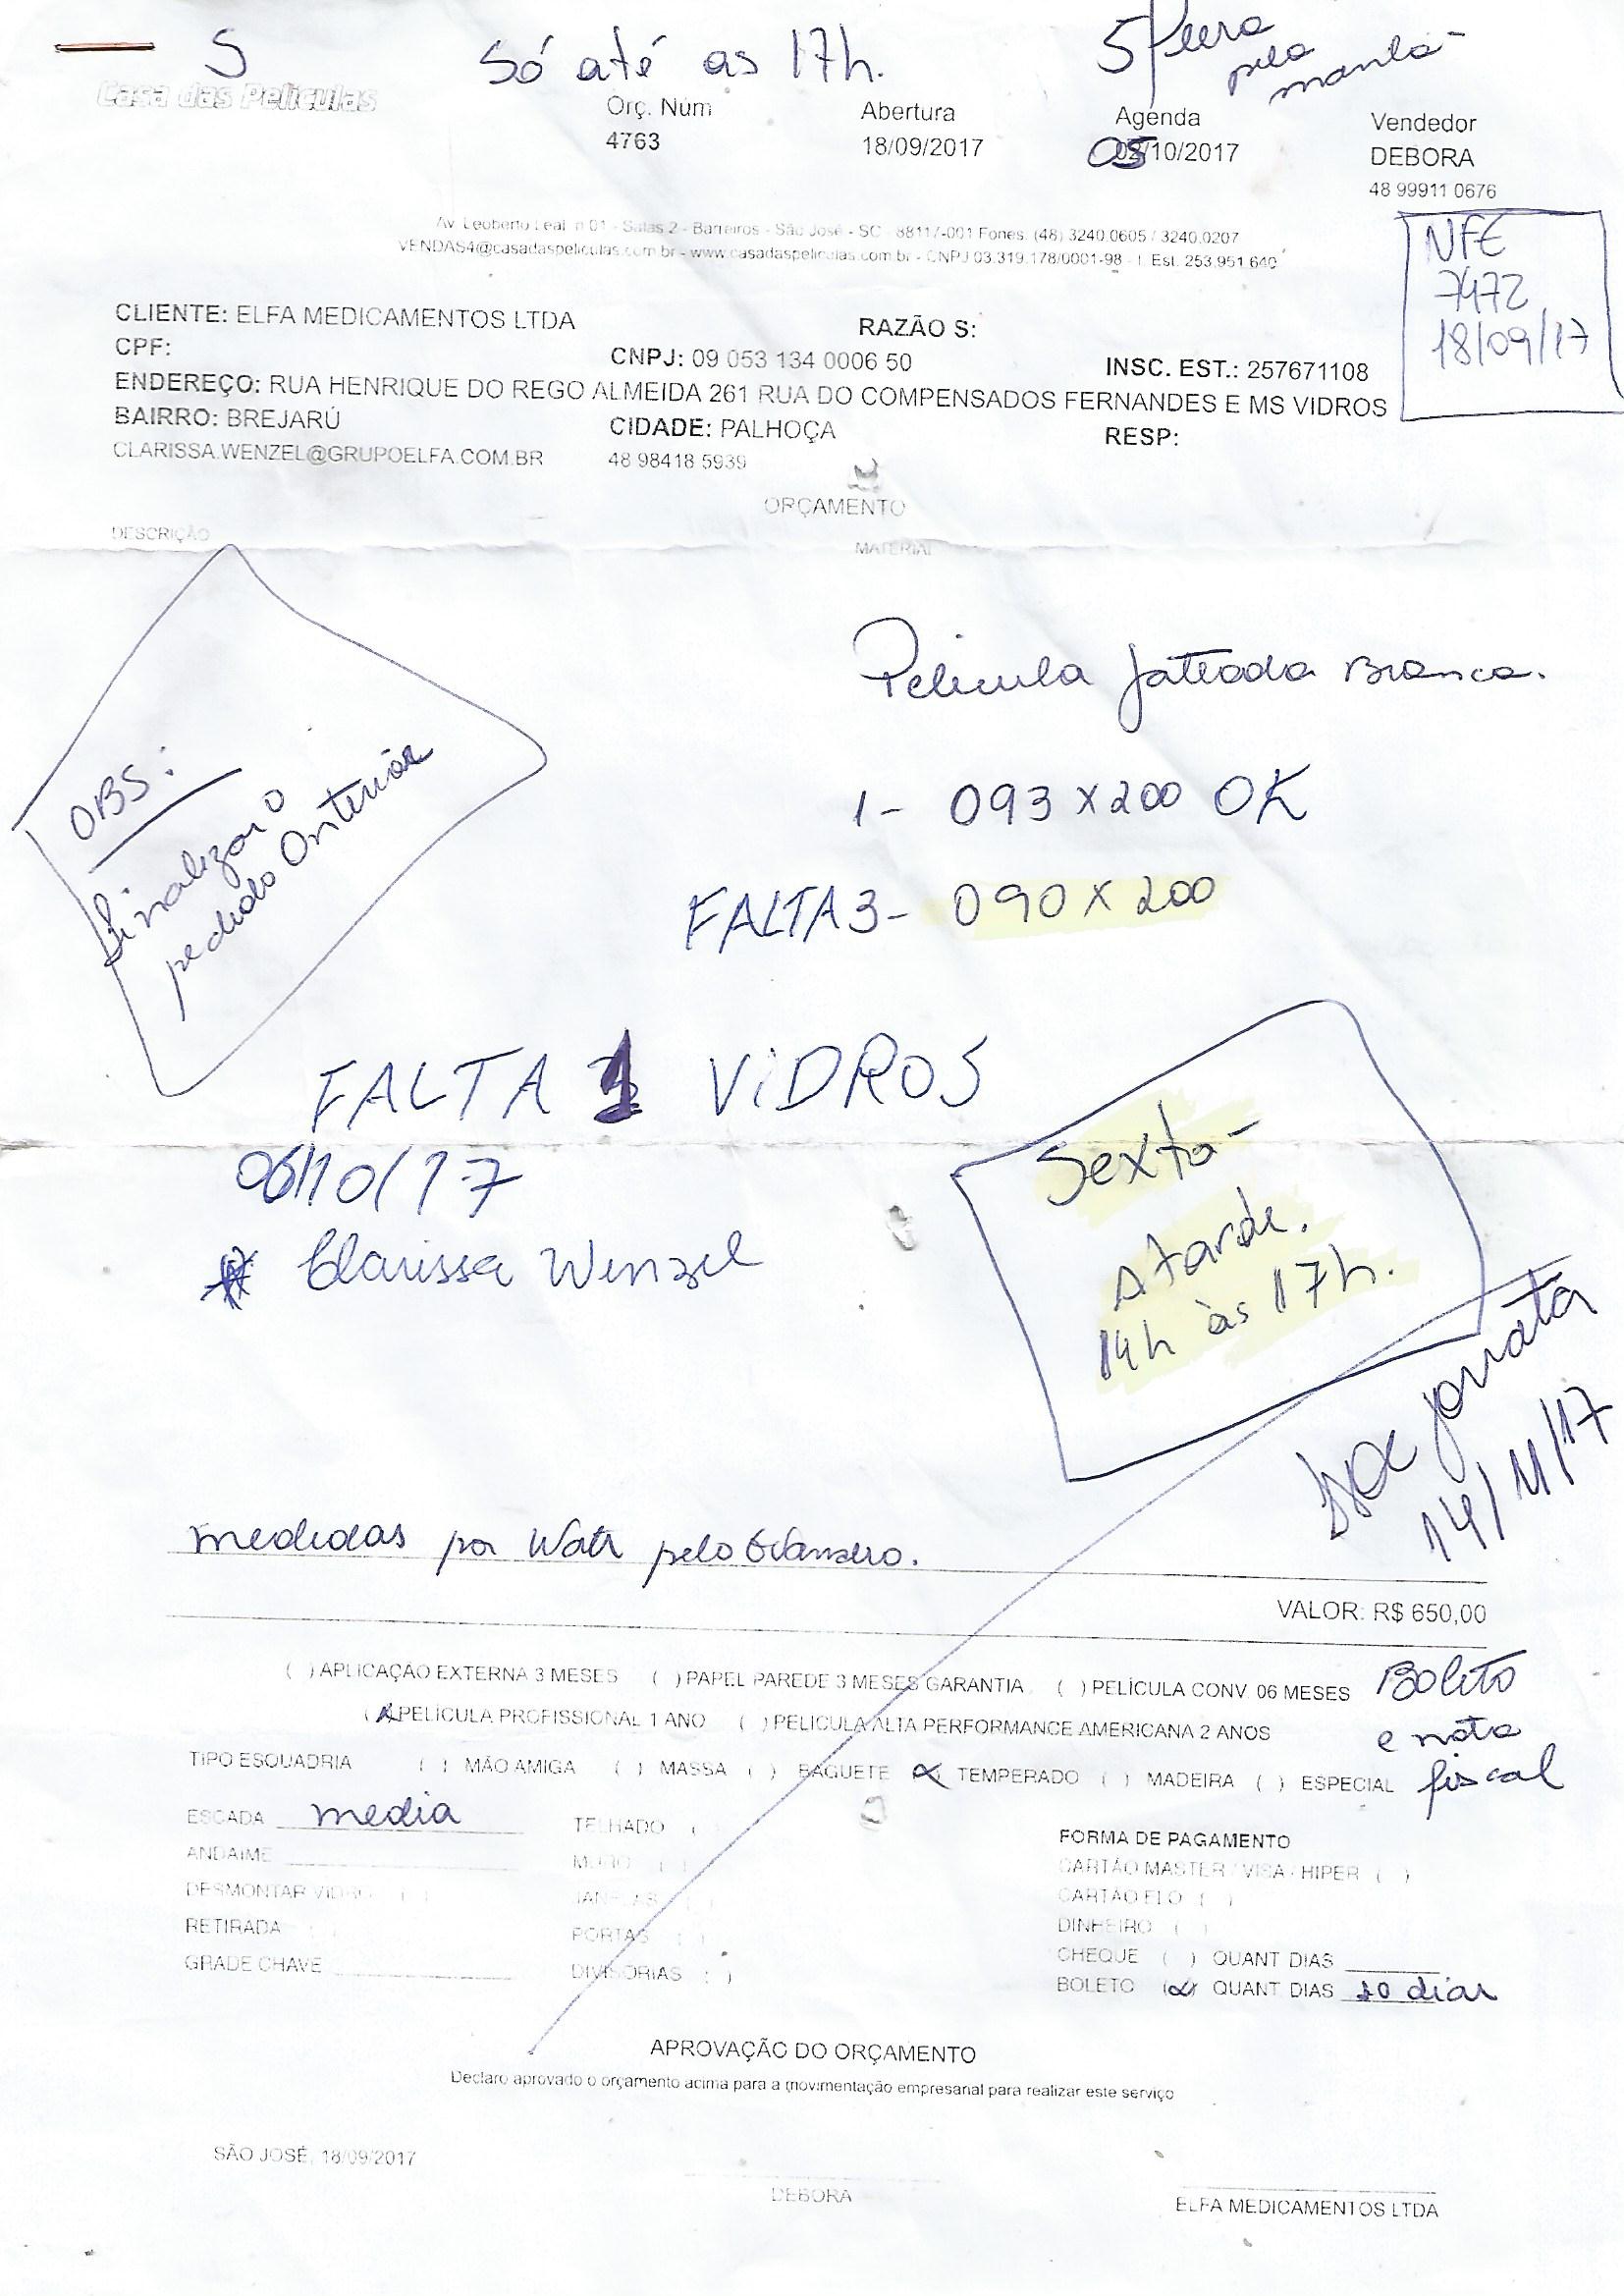 S Só até as 17h. 5ª feira
pela
manhã
Casa das Películas
Orç. Núm Abertura Agenda Vendedor
4763 18/09/2017 05/10/2017 DEBORA
48 99911 0676
Av. Leoberto Leal, n 01 - Salas 2 - Barreiros - São José - SC - 88117-001 Fones: (48) 3240.0605 / 3240.0207
VENDAS4@casadaspeliculas.com.br - www.casadaspeliculas.com.br - CNPJ 03.319.178/0001-98 - I. Est. 253.951.640
NFE
7472
18/09/17
CLIENTE: ELFA MEDICAMENTOS LTDA RAZÃO S:
CPF: CNPJ: 09 053 134 0006 50 INSC. EST.: 257671108
ENDEREÇO: RUA HENRIQUE DO REGO ALMEIDA 261 RUA DO COMPENSADOS FERNANDES E MS VIDROS
BAIRRO: BREJARÚ CIDADE: PALHOÇA RESP:
CLARISSA.WENZEL@GRUPOELFA.COM.BR 48 98418 5939
ORÇAMENTO
DESCRIÇÃO MATERIAL
Película Jateada Branca.
OBS:
finalizar o
pedido Anterior
1- 093 X 200 OK
FALTA 3- 090 X 200
FALTA 1 VIDROS
06/10/17
Clarissa Wenzel
Sexta
A tarde.
14h às 17h.
14/11/17
medidas por Wats pelo
VALOR: R$ 650,00
( ) APLICAÇÃO EXTERNA 3 MESES ( ) PAPEL PAREDE 3 MESES GARANTIA ( ) PELÍCULA CONV. 06 MESES
(X) PELÍCULA PROFISSIONAL 1 ANO ( ) PELICULA ALTA PERFORMANCE AMERICANA 2 ANOS
Boleto
e nota
fiscal
TIPO ESQUADRIA ( ) MÃO AMIGA ( ) MASSA ( ) BAGUETE (X) TEMPERADO ( ) MADEIRA ( ) ESPECIAL
ESCADA media TELHADO ( ) FORMA DE PAGAMENTO
ANDAIME MURO ( ) CARTÃO MASTER / VISA - HIPER ( )
DESMONTAR VIDRO ( ) JANELAS ( ) CARTÃO ELO ( )
RETIRADA ( ) PORTAS ( ) DINHEIRO ( )
GRADE CHAVE DIVISORIAS ( ) CHEQUE ( ) QUANT DIAS
BOLETO (X) QUANT DIAS 20 dias
APROVAÇÃO DO ORÇAMENTO
Declaro aprovado o orçamento acima para a movimentação empresarial para realizar este serviço
SÃO JOSÉ, 18/09/2017
DEBORA
ELFA MEDICAMENTOS LTDA